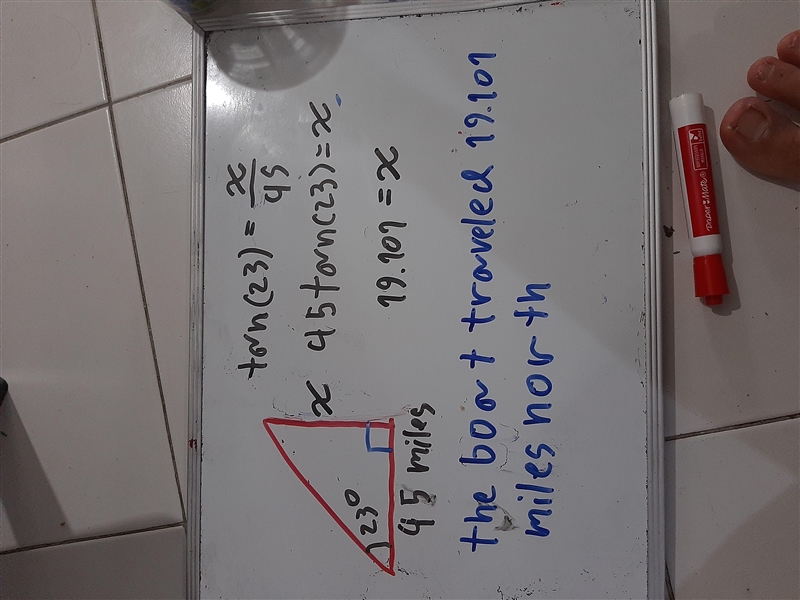 tan(23) = x/45
x 45tan(23) = x
19.101 = x
23°
45 miles
the boat traveled 19.101
miles north
Paper Mate